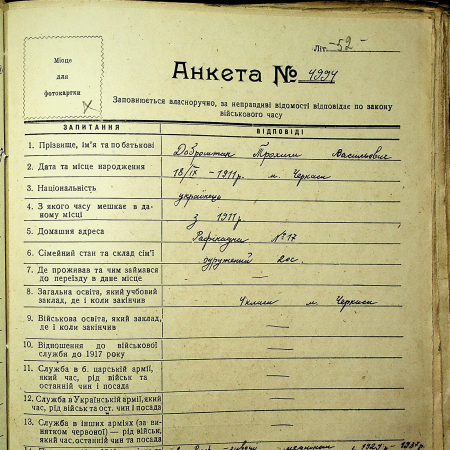 Літ. -52-
Місце
для
фотокартки
Анкета № 4994
Заповнюється власноручно, за неправдиві відомості відповідає по закону
військового часу
ЗАПИТАННЯ ВІДПОВІДІ
1. Прізвище, ім'я та по батькові Васильович
2. Дата та місце народження 18/IX - 1911 р. м. Черкаси
3. Національність українець
4. З якого часу мешкає в даному місці з 1911 р.
5. Домашня адреса № 17
6. Сімейний стан та склад сім'ї
7. Де проживав та чим займався
до переїзду в дане місце —
8. Загальна освіта, який учбовий
заклад, де і коли закінчив 4 класи м. Черкаси
9. Військова освіта, який заклад,
де і коли закінчив —
10. Відношення до військової
служби до 1917 року —
11. Служба в б. царській армії,
який час, рід військ та
останній чин і посада —
12. Служба в Українській армії, який
час, рід військ та ост. чин і посада —
13. Служба в інших арміях (за ви-
нятком червоної) — рід військ,
який час, останній чин та посада —